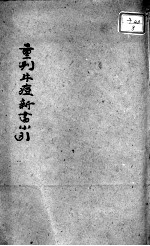 重刊牛痘新書小引